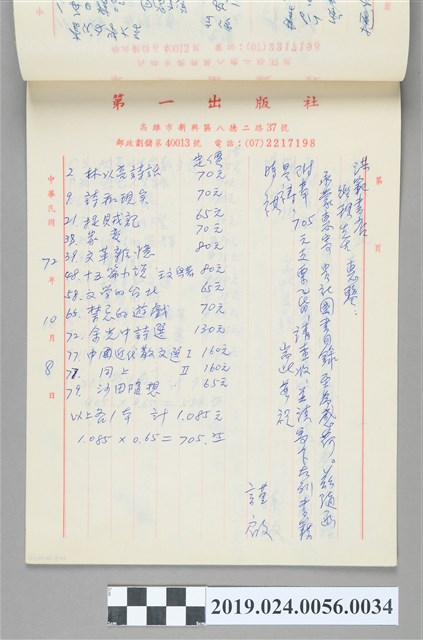 郵政劃儲第40013號 電話：(07)2217198
第一出版社
高雄市新興區八德二路37號
郵政劃儲第40013號 電話：(07)2217198
第 頁
洪範書店
惠鑒：
承蒙惠寄貴社圖書目錄至為感荷。茲隨函
附章705元支票乙紙，請查收，並請寄下左列書籍
是禱 耑此 敬祝
時綏
謹啟
定價
2. 林以亮詩話 70元
9. 詩和現實 70元
21. 65元
38. 家變 70元
39. 文革雜憶 80元
48. 十五篇小說 80元
58. 文學的台北 65元
65. 禁忌的遊戲 70元
72. 余光中詩選 130元
77. 中國近代散文選 I 160元
77. 同上 II 160元
79. 沙田隨想 65元
以上各1本 計 1.085元
1.085 × 0.65 = 705.
中華民國 72年 10月 8日
2019.024.0056.0034